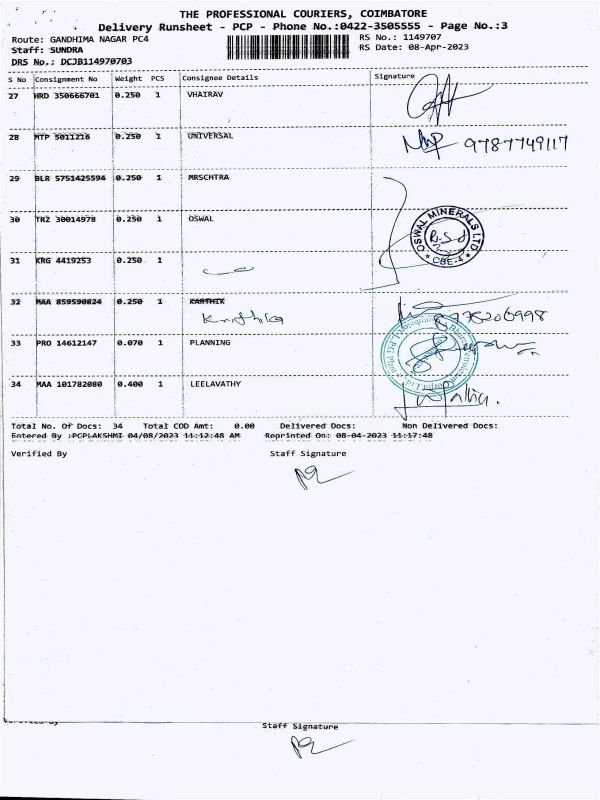 THE PROFESSIONAL COURIERS, COIMBATORE
Delivery Runsheet - PCP - Phone No.:0422-3505555 - Page No.:3
Route: GANDHIMA NAGAR PC4 RS No.: 1149707
Staff: SUNDRA RS Date: 08-Apr-2023
DRS No.: DCJB114970703
S No Consignment No Weight PCS Consignee Details Signature
27 HRD 350666701 0.250 1 VHAIRAV
28 MTP 5011216 0.250 1 UNIVERSAL 9787749117
29 BLR 5751425594 0.250 1 MRSCHTRA
30 TRZ 30014978 0.250 1 OSWAL
OSWAL MINERALS LTD
* CBE-4 *
31 KRG 4419253 0.250 1
32 MAA 859590824 0.250 1 KARTHIK
Karthika
33 PRO 14612147 0.070 1 PLANNING
34 MAA 101782080 0.400 1 LEELAVATHY
Total No. Of Docs: 34 Total COD Amt: 0.00 Delivered Docs: Non Delivered Docs:
Entered By :PCPLAKSHMI 04/08/2023 11:12:48 AM Reprinted On: 08-04-2023 11:17:48
Verified By Staff Signature
Staff Signature